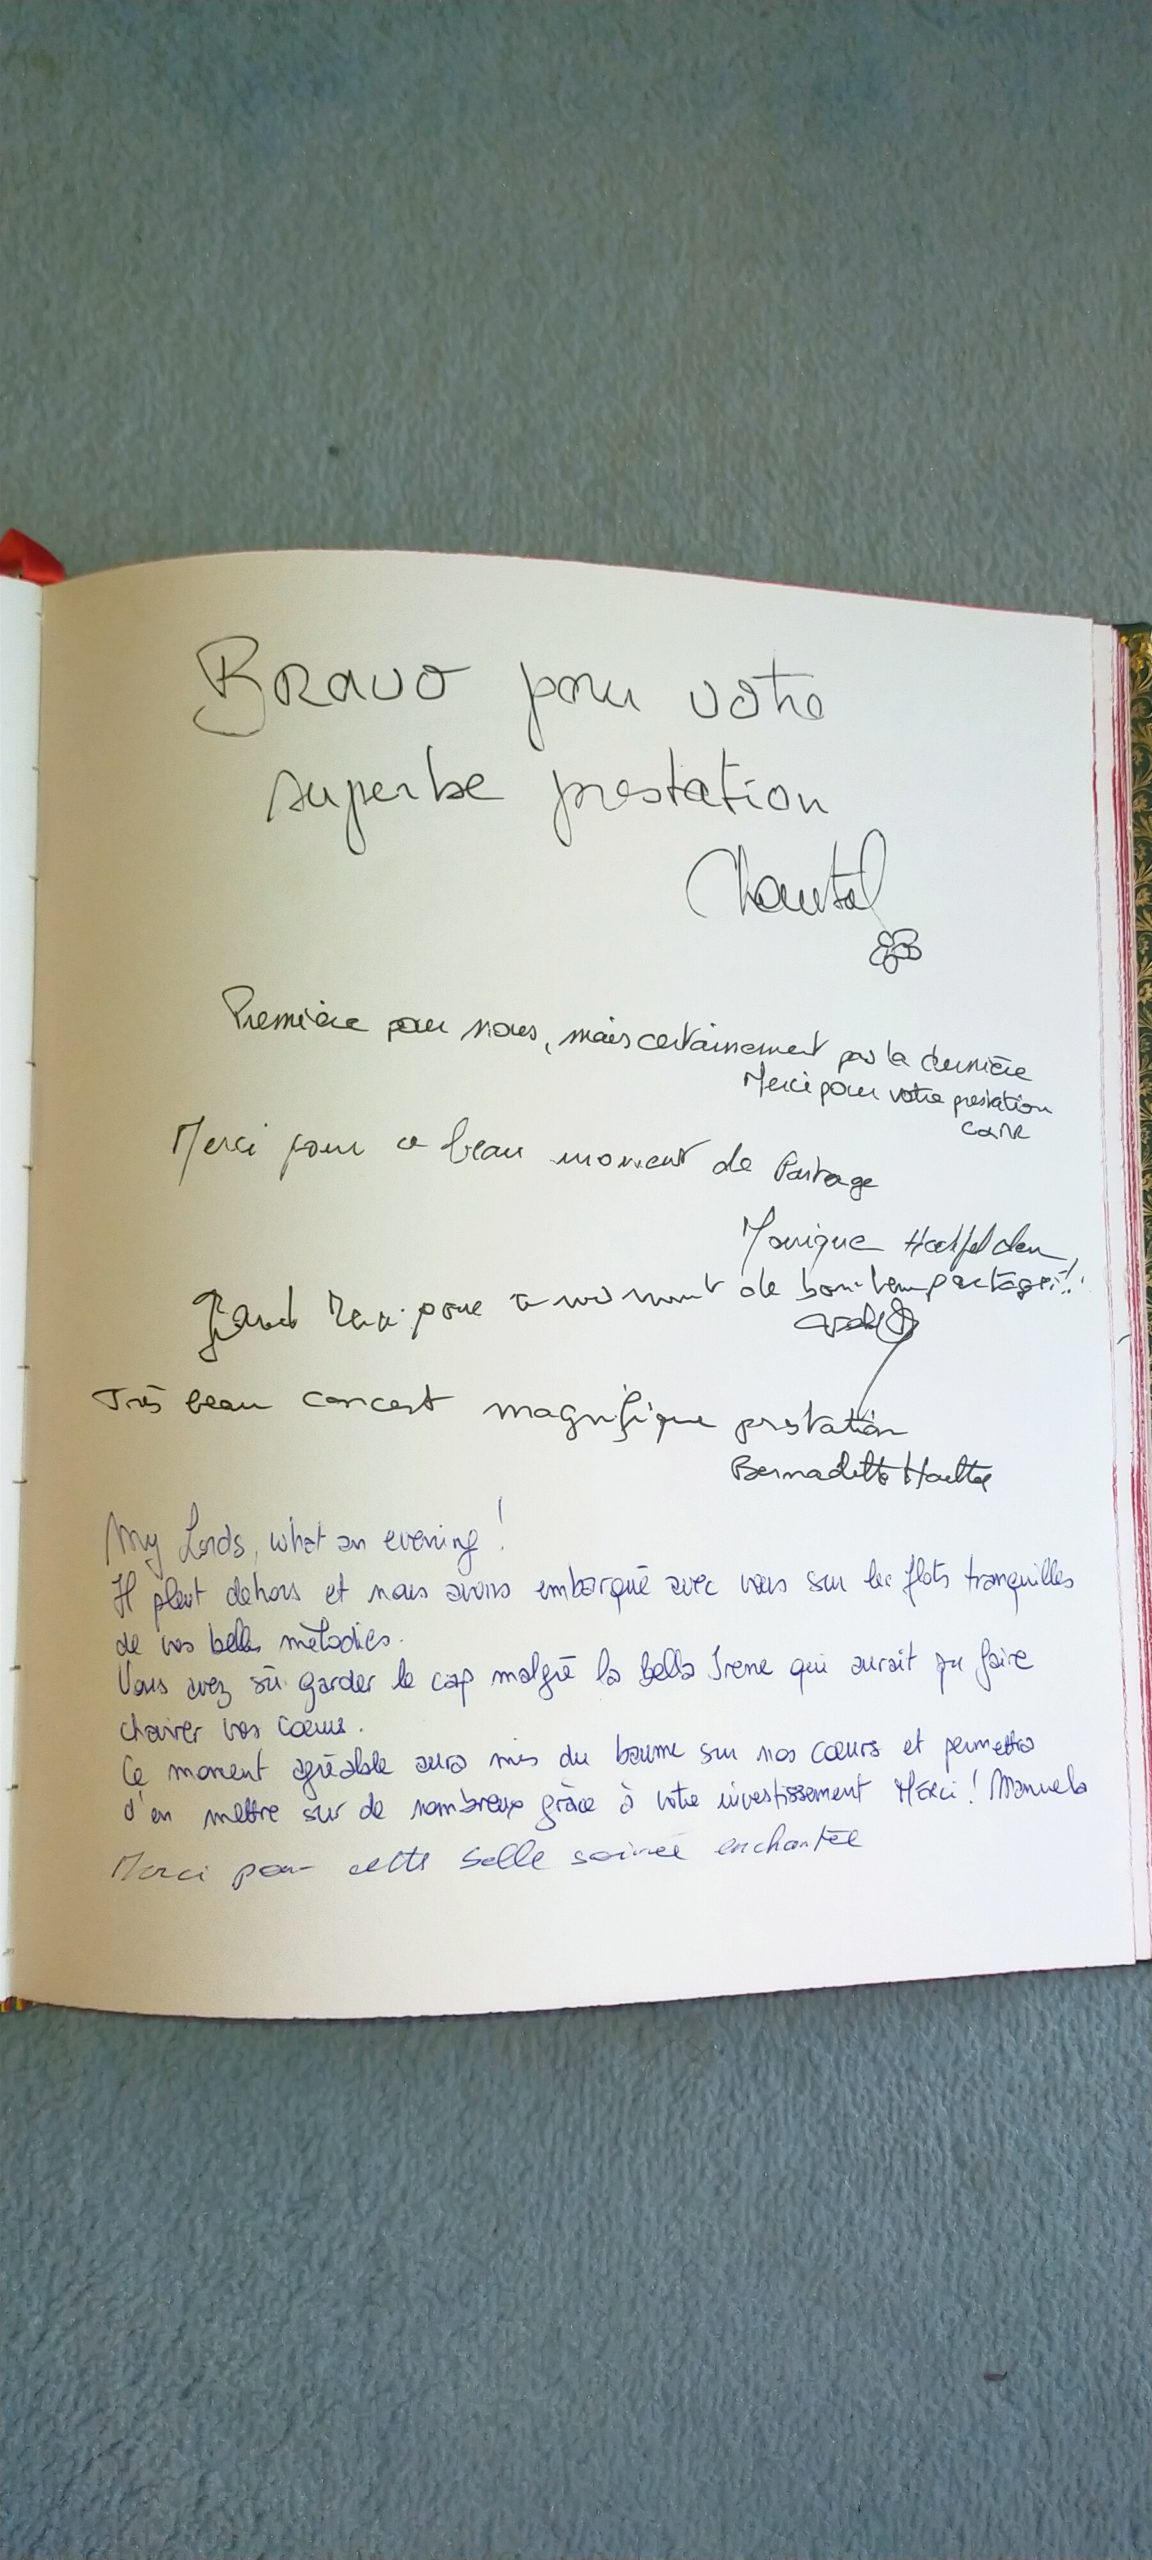 Bravo pour votre
superbe prestation
Chantal
Première pour nous, mais certainement pas la dernière
Merci pour votre prestation
Merci pour ce beau moment de Partage
Monique
Grand Merci pour ce moment de bonheur partagé!!
Très beau concert magnifique prestation
Bernadette
My Lords, what an evening !
Il pleut dehors et nous avons embarqué avec vous sur les flots tranquilles
de vos belles mélodies.
Vous avez sû garder le cap malgré la bella Irene qui aurait pu faire
chavirer vos cœurs.
Ce moment agréable aura mis du baume sur nos cœurs et permettra
d'en mettre sur de nombreux grâce à votre investissement Merci ! Manuela
Merci pour cette belle soirée enchantée